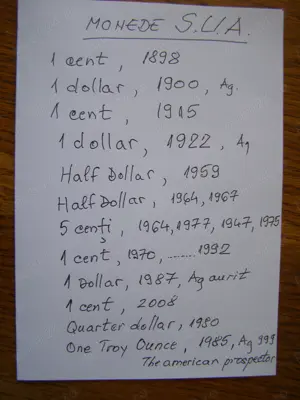 MONEDE S.U.A.
1 cent, 1898
1 dollar, 1900, Ag.
1 cent, 1915
1 dollar, 1922, Ag
Half Dollar, 1959
Half Dollar, 1964, 1967
5 cenți, 1964, 1977, 1947, 1975
1 cent, 1970, ........ 1992
1 Dollar, 1987, Ag aurit
1 cent, 2008
Quarter dollar, 1980
One Troy Ounce, 1985, Ag 999
The american prospector